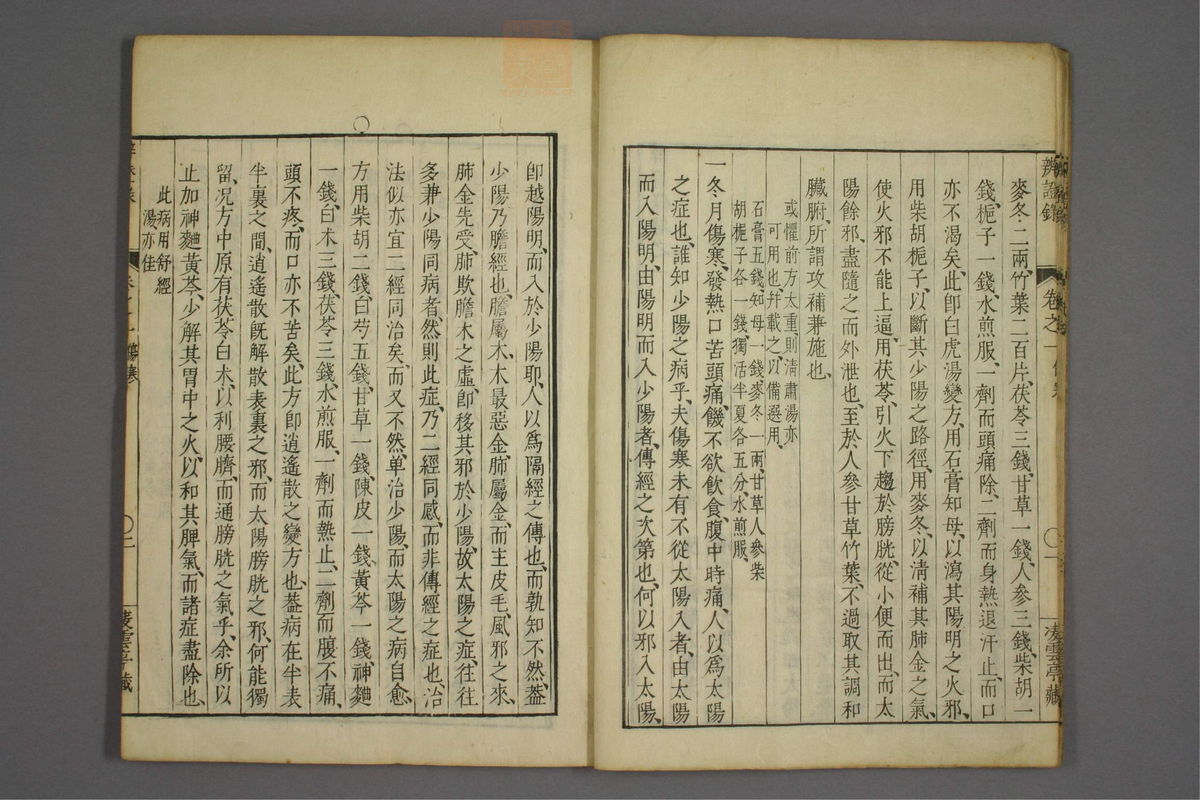 辨證錄 卷之一 凌雲亭藏
麥冬二兩、竹葉二百片、茯苓三錢、甘草一錢、人參三錢、柴胡一
錢、梔子一錢、水煎服、一劑而頭痛除、二劑而身熱退、汗止、而口
亦不渴矣、此卽白虎湯變方、用石膏知母、以瀉其陽明之火邪、
用柴胡梔子、以斷其少陽之路徑、用麥冬、以清補其肺金之氣、
使火邪不能上逼、用茯苓、引火下趨於膀胱、從小便而出、而太
陽餘邪、盡隨之而外泄也、至於人參甘草竹葉、不過取其調和
臟腑、所謂攻補兼施也、
或懼前方太重、則清肅湯亦
可用也、幷載之以備選用、
石膏五錢、知母一錢、麥冬一兩、甘草人參柴
胡梔子各一錢、獨活半夏各五分、水煎服、
一冬月傷寒、發熱口苦頭痛、饑不欲飲食、腹中時痛、人以爲太陽
之症也、誰知少陽之病乎、夫傷寒未有不從太陽入者、由太陽
而入陽明、由陽明而入少陽者、傳經之次第也、何以邪入太陽、
卽越陽明、而入於少陽耶、人以爲隔經之傳也、而孰知不然、蓋
少陽乃膽經也、膽屬木、木最惡金、肺屬金、而主皮毛、風邪之來、
肺金先受、肺欺膽木之虛、卽移其邪於少陽、故太陽之症、往往
多兼少陽同病者、然則此症、乃二經同感、而非傳經之症也、治
法似亦宜二經同治矣、而又不然、单治少陽、而太陽之病自愈、
方用柴胡二錢、白芍五錢、甘草一錢、陳皮一錢、黃芩一錢、神麯
一錢、白朮三錢、茯苓三錢、水煎服、一劑而熱止、二劑而腹不痛、
頭不疼、而口亦不苦矣、此方卽逍遙散之變方也、蓋病在半表
半裏之間、逍遙散旣解散表裏之邪、而太陽膀胱之邪、何能獨
留、况方中原有茯苓白朮、以利腰臍、而通膀胱之氣乎、余所以
止加神麯黃芩、少解其胃中之火、以和其脾氣、而諸症盡除也、
此病用舒經
湯亦佳